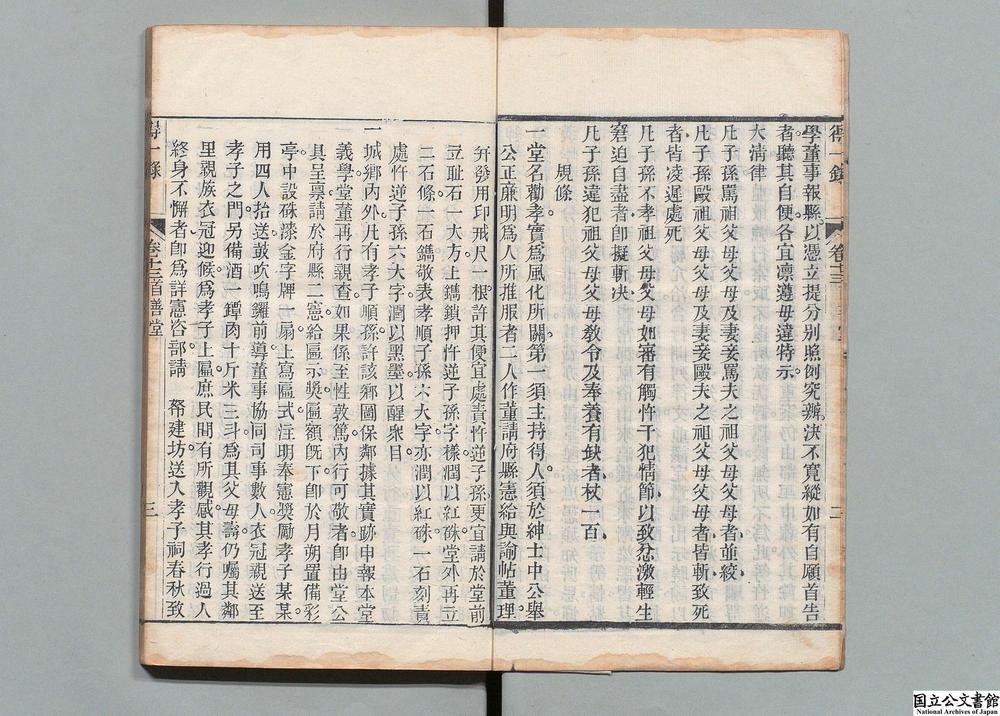 得一錄
卷十三
二
學董事報縣以憑立提分別照例究辦決不寬縱如有自願首告
者聽其自便各宜凛遵毋違特示
大清律
凡子孫罵祖父母父母及妻妾罵夫之祖父母父母者並絞
凡子孫毆祖父母父母及妻妾毆夫之祖父母父母者皆斬致死
者皆凌遲處死
凡子孫不孝祖父母父母如審有觸忤干犯情節以致忿激輕生
窘迫自盡者即擬斬决
凡子孫違犯祖父母父母敎令及奉養有缺者杖一百
規條
一堂名勸孝實爲風化所關第一須主持得人須於紳士中公舉
公正廉明爲人所推服者二人作董請府縣憲給與諭帖董理
并發用印戒尺一根許其便宜處責忤逆子孫更宜請於堂前
豆耻石一大方上鐫鎖押忤逆子孫字樣潤以紅硃堂外再立
二石條一石鐫敬表孝順子孫六大字亦潤以紅硃一石刻責
處忤逆子孫六大字潤以黑墨以醒衆目
一城鄉內外凡有孝子順孫許該鄉圖保鄰據其實跡申報本堂
義學堂董再行親查如果係至性敦篤內行可敬者卽由堂公
具呈禀請於府縣二憲給匾示奬匾額旣下卽於月朔置備彩
亭中設硃漆金字牌一扇上寫匾式注明奉憲奬勵孝子某某
用四人抬送鼓吹鳴鑼前導董事協同司事數人衣冠親送至
孝子之門另備酒一罈肉十斤米三斗爲其父母壽仍囑其鄰
里親族衣冠迎候爲孝子上匾庶民間有所觀感其孝行過人
終身不懈者卽爲詳憲咨部請　帑建坊送入孝子祠春秋致
得一錄
卷十三首善堂
三
国立公文書館
National Archives of Japan